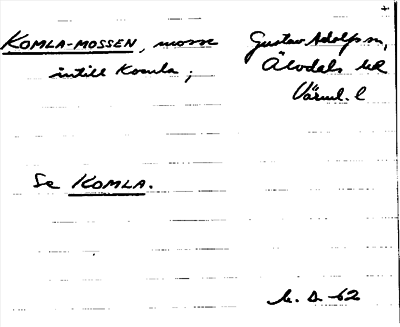 KOMLA-MOSSEN, mosse Gustav Adolfs sn,
intill Komla; Älvdals hd
Värml. l
Se KOMLA.
62